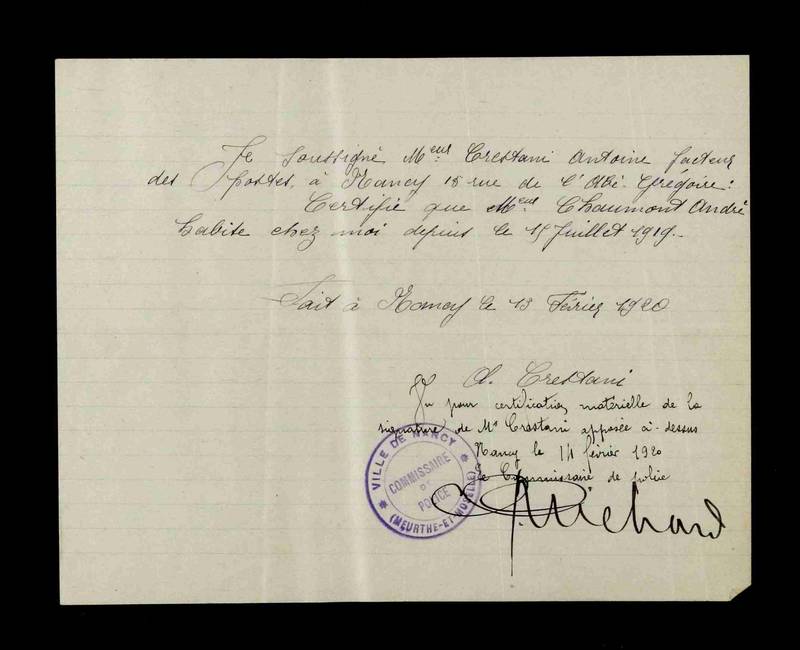 Je soussigné Meur Crestani Antoine facteur
des postes, à Nancy 18 rue de l'Abé. Grégoire:
Certifie que Meur Chaumont André
habite chez moi depuis le 15 Juillet 1919.-
Fait à Nancy le 13 Février 1920
A. Crestani
Vu pour certification matérielle de la
signature de Mr Crestani apposée ci-dessus
Nancy le 14 février 1920
Le Commissaire de police
VILLE DE NANCY
COMMISSAIRE
DE
POLICE
(MEURTHE-ET-MOSELLE)